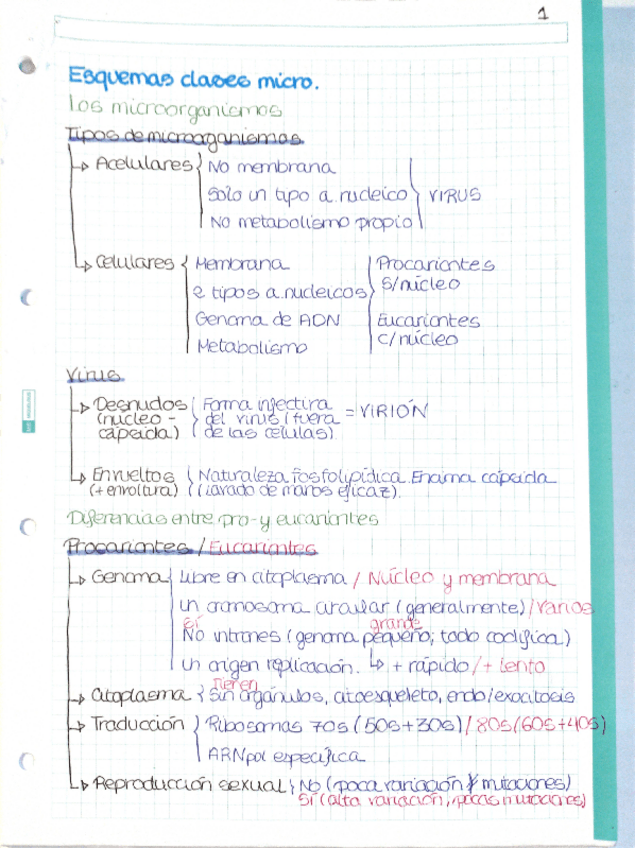 1
Esquemas clases micro.
Los microorganismos
Tipos de microorganismos
Acelulares { No membrana
Solo un tipo a. nucleico } VIRUS
No metabolismo propio
Celulares { Membrana | Procariontes
s/núcleo
2 tipos a. nucleicos
Genoma de ADN | Eucariontes
c/núcleo
Metabolismo
Virus
Desnudos { Forma infectiva
(núcleo - del virus (fuera = VIRIÓN
cápsida) de las células)
Envueltos { Naturaleza fosfolipídica. Encima cápsida
(+ envoltura) (lavado de manos eficaz).
Diferencias entre pro- y eucariontes
Procariontes / Eucariontes
Genoma { Libre en citoplasma / Núcleo y membrana
Un cromosoma circular (generalmente) / Varios
Sí grande
No intrones (genoma pequeño; todo codifica)
Un origen replicación. ↳ + rápido / + lento
Tienen
Citoplasma { Sin orgánulos, citoesqueleto, endo/exocitosis
Traducción { Ribosomas 70s (50s+30s) / 80s (60s+40s)
ARNpol específica
Reproducción sexual { No (poca variación y mutaciones)
Sí (alta variación, pocas mutaciones)